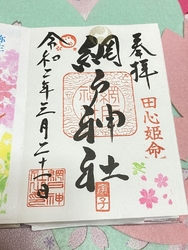 奉拝
田心姫命
網戸神社
庚子
令和二年三月二十一日